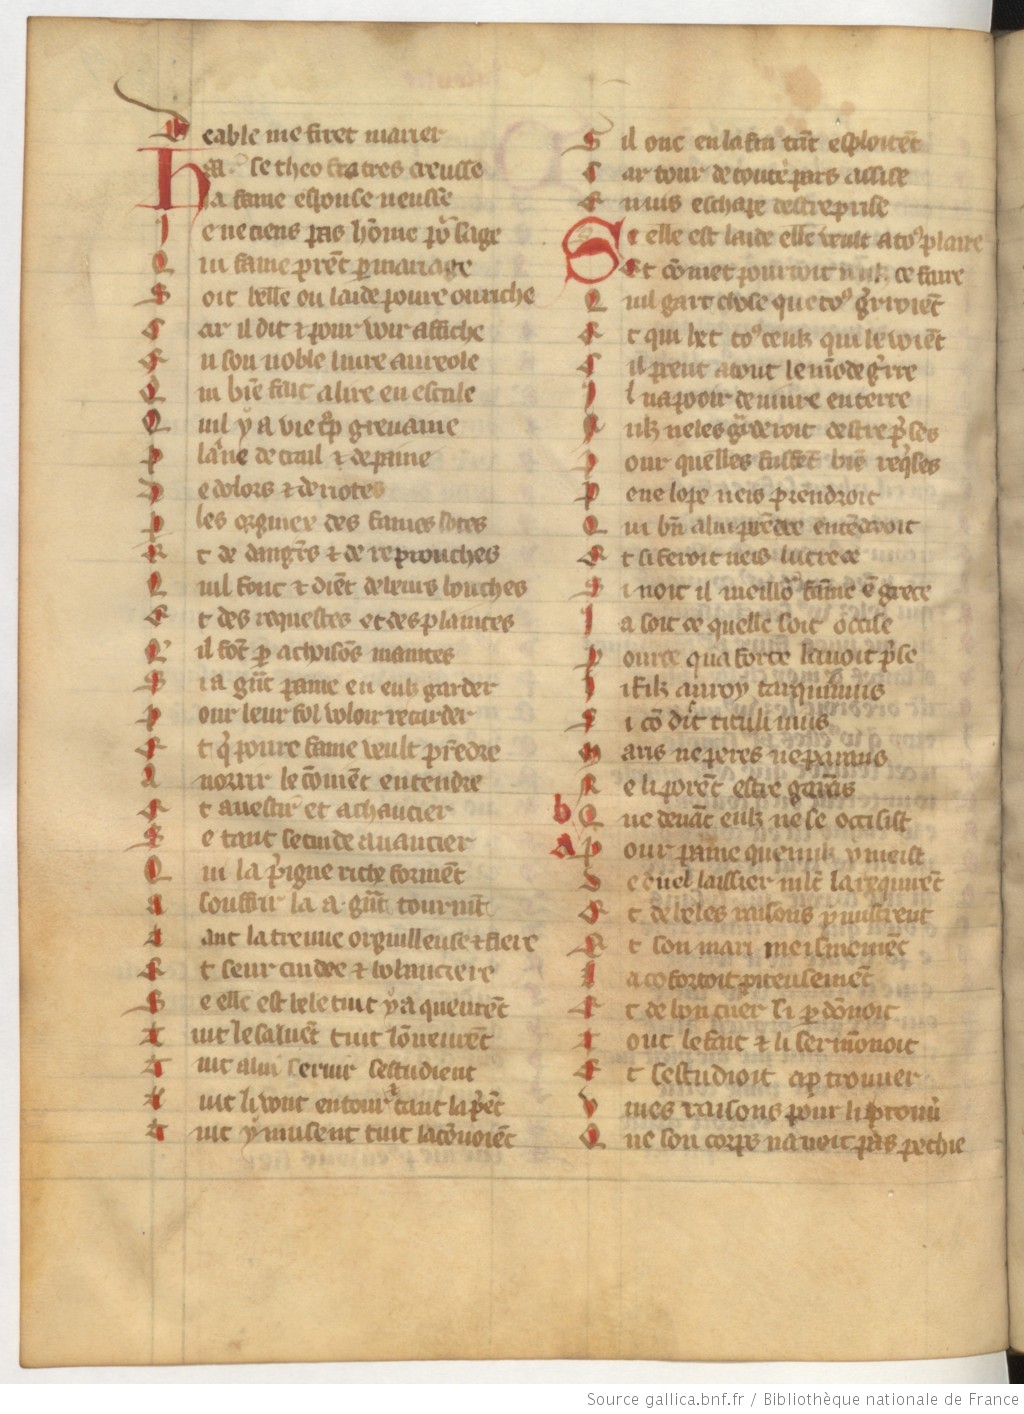 D eable me firet marier
Ha se theofrastres creusse
Ja fame espouse neusse
I e ne tiens pas hõme põ sage
Q ui fame prẽt p mariage
S oit belle ou laide poure ou riche
C ar il dit ⁊ pour voir affiche
E n son noble liure aureole
Q ui biẽ fait a lire en escole
Q uil y a vie tˢp greuaine
P laĩne de trauil ⁊ de paine
D e dolors ⁊ de riotes
P les orguiex des fames sotes
E t de dangˢs ⁊ de reprouches
Q uil font ⁊ diẽt de leurs bouches
E t des requestes et des plaintes
Q il sõt p achoisõs maintes
S i a gñt paine en eulz garder
P our leur fol voloir retarder
E t q poure fame veult prẽdre
A norrir le cõuiẽt entendre
E t a uestir et a chaucier
S e tant se cuide auancier
Q ui la prigne riche formẽt
A souffrir la a gñt tourmt̃
T ant la treuue orguilleuse ⁊ fiere
E t seur cuidee ⁊ bobanciere
S e elle est bele tuit y aqueurẽt
T uit le saluẽt tuit lõneurẽt
T uit a lui seruir sestudient
T uit li vont entour tant la pˢẽt
T uit y musent tuit la cõuoiẽt
S il ont en la fin tãt esploitẽt
C ar tour de toutˢe pars assise
E nuis eschape destre prise
S e elle est laide elle veult a toˢ plaire
Et cõmẽt pourroit nulz ce faire
Q uil gart chose que toˢ guˢroiẽt
E t qui het toˢ ceulz qui le voiẽt
C il prent a tout le mõde gˢrre
I l na pooir de viure en terre
N ulz ne les gˢderoit destre pˢses
P our quelles fussẽt biẽ reqˢses
P enelope neis prendroit
Q ui bñ a lui prẽdre entẽdroit
E t si feroit neis lucrece
S i not il meilloˢ fãme ẽ grece
I a soit ce quelle soit occise
P ource qua force lauoit pˢse
I i filz au roy tarquinius
S i cõ dit titulinius
M aris ne peres ne parans
N e li porẽt estre garãs
b Q ue deuãt eulz ne se occisist
a P our paine que nulz y meist
D e duel laissier mlt̃ la requirẽt
E t de beles raisons p mistrent
E t son mari meismemẽt
L a cõfortoit piteusemẽt
E t de bon cuer li pdõnoit
T out le fait ⁊ li sermõnoit
E t sestudioit a p trouuer
V iues raisons pour li prouuˢ
Q ue son corps nauoit pas pechie
Source gallica.bnf.fr / Bibliothèque nationale de France